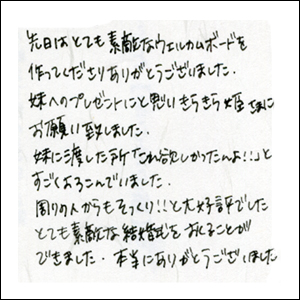 先日はとても素敵なウェルカムボードを
作ってくださりありがとうございました.
妹へのプレゼントにと思いきらきら姫さまに
お願い致しました.
妹に渡した所「これ欲しかったんよ!!」と
すごくよろこんでいました.
周りの人からもそっくり!!と大好評でした
とても素敵な結婚式をおくることが
できました. 本当にありがとうございました